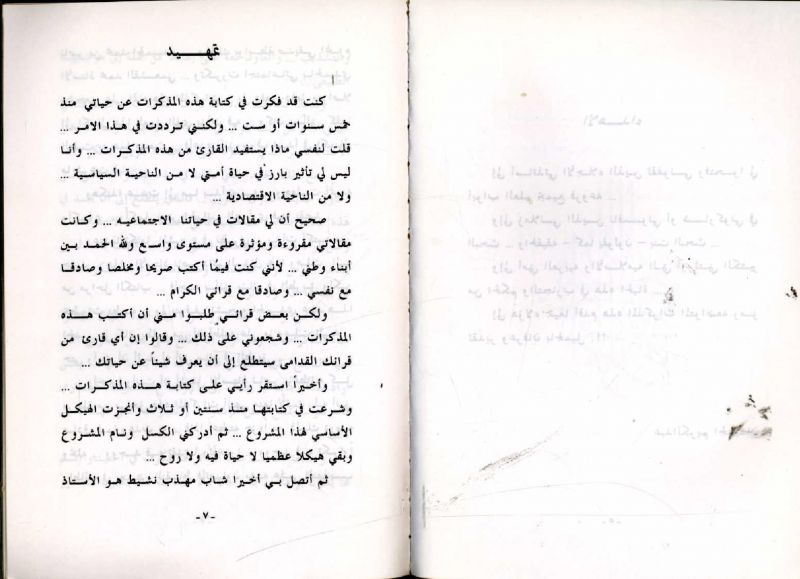 تمهـــيد
كنت قد فكرت في كتابة هذه المذكرات عن حياتي منذ
خمس سنوات أو ست ... ولكنني ترددت في هذا الامر ...
قلت لنفسي ماذا يستفيد القارئ من هذه المذكرات ... وأنا
ليس لي تأثير بارز في حياة أمتي لا من الناحية السياسية ...
ولا من الناحية الاقتصادية ...
صحيح أن لي مقالات في حياتنا الاجتماعيه ... وكانت
مقالاتي مقروءة ومؤثرة على مستوى واسع ولله الحمد بين
أبناء وطني ... لأنني كنت فيما أكتب صريحا ومخلصا وصادقا
مع نفسي ... وصادقا مع قرائي الكرام ...
ولكن بعض قرائي طلبوا مني أن أكتب هذه
المذكرات ... وشجعوني على ذلك ... وقالوا إن أي قارئ من
قرائك القدامى سيتطلع إلى أن يعرف شيئاً عن حياتك ...
وأخيراً استقر رأيي على كتابة هذه المذكرات ...
وشرعت في كتابتها منذ سنتين أو ثلاث وأنجزت الهيكل
الأساسي لهذا المشروع ... ثم أدركني الكسل ونام المشروع
وبقي هيكلاً عظميا لا حياة فيه ولا روح ...
ثم أتصل بي أخيرا شاب مهذب نشيط هو الأستاذ
-٧-